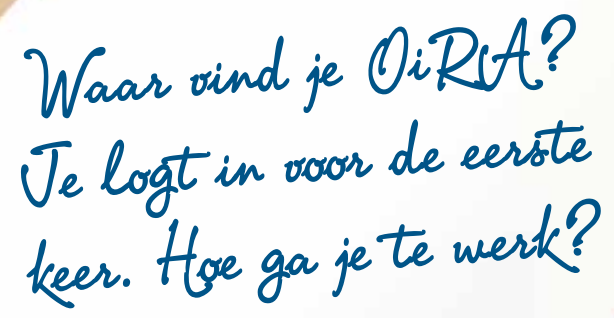 Waar vind je OiRA?
Je logt in voor de eerste
keer. Hoe ga je te werk?